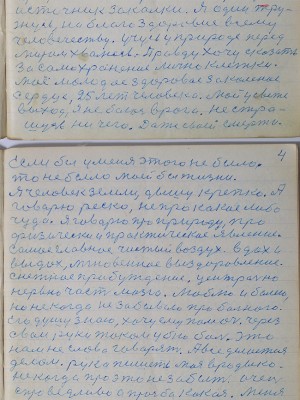 источник закалки. Я один тру-
жусь, на благо здоровие всему
человечеству. учусь у природе перед
миром хвалюсь. Правду хочу сказать
За самохранение личной клетки.
Мое молодое здоровое закаленое
сердце, 25 лет человека. Мой у свете
выход, Я не боюсь врага. не стра-
шусь ни чего. Даже своей смерти.
4
Если бы у меня этого не было.
то не было моей бы жизни.
Я человек земли, дышу крепко. А
говорю резко, не про какое либо
чудо. Я говорю про природу, про
физически и практическое явление.
Самое главное чистый воздух. вдох и
выдох, мгновенное выздоровление.
снежное пробуждение, централно
нервно часть мозга. Люблю и болею,
но некогда не забываю про больного.
его душу знаю, хочу ему помоч. через
свои руки током убью бол. Это
нам не слова говорят. А все делается
делом. рука пишет моя
некогда про это не забыт. очен
справедливо просьба какая. Меня